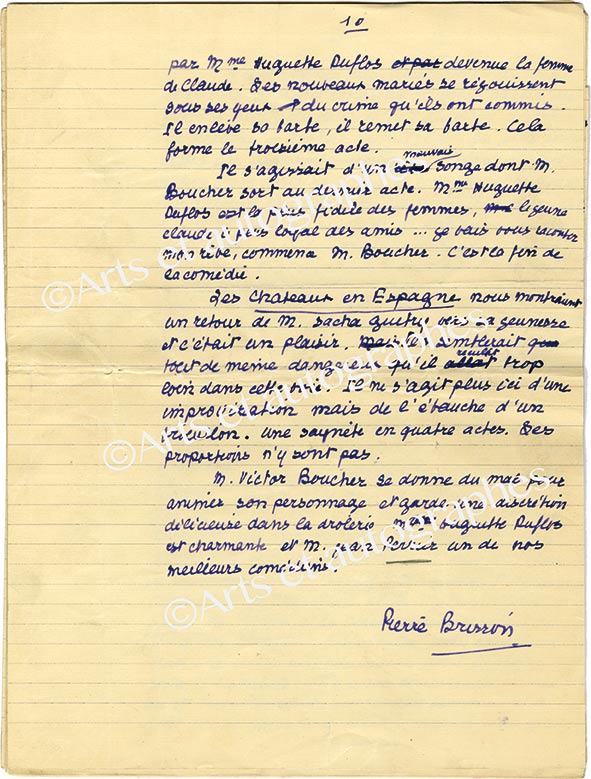 10
par Mme Huguette Duflos et par devenue la femme
de Claude. Les nouveaux mariés se réjouissent
sous ses yeux du crime qu'ils ont commis.
Il enlève sa barbe, il remet sa barbe. Cela
forme le troisième acte.
Il s'agissait d'un mauvais songe dont M.
Boucher sort au dernier acte. Mme Huguette
Duflos est la plus fidèle des femmes, le jeune
Claude le plus loyal des amis ... Je vais vous raconter
mon rêve, commença M. Boucher. C'est la fin de
la comédie.
Les Chateaux en Espagne nous montraient
un retour de M. Sacha Guitry vers sa jeunesse
et c'était un plaisir. Mais il semblerait
tout de même dangereux qu'il reculât allat trop
loin dans cette voie. Il ne s'agit plus ici d'une
improvisation mais de l'ébauche d'un
brouillon. Une saynète en quatre actes. Les
proportions n'y sont pas.
M. Victor Boucher se donne du mal pour
animer son personnage et garde une discrétion
délicieuse dans la drôlerie. Mme Huguette Duflos
est charmante et M. Jean Périer un de nos
meilleurs comédiens.
Pierre Brisson
©Arts et autographes
©Arts et autographes
©Arts et autographes